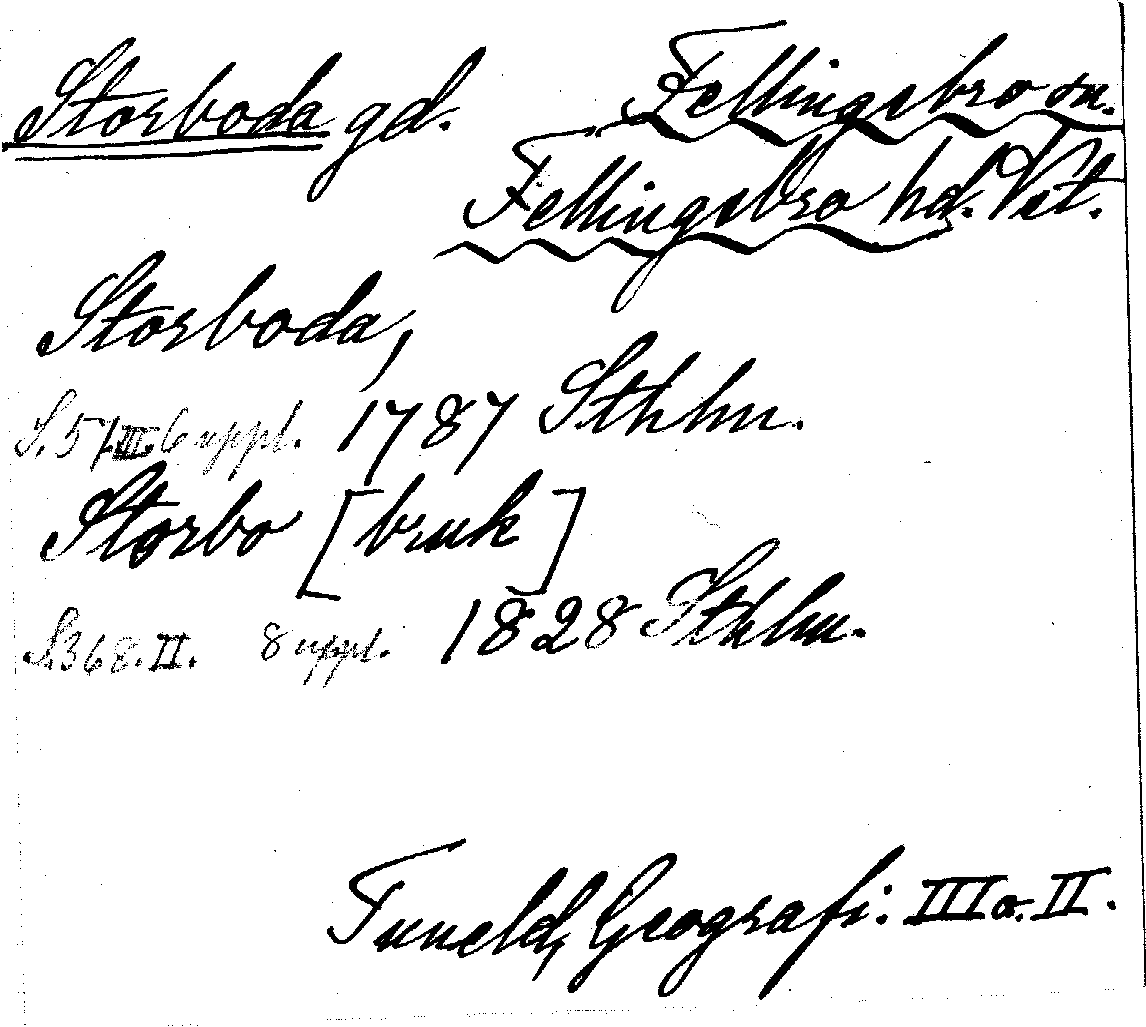 Storboda gd. Fellingsbro sn.
Fellingsbro hd. Vst.
Storboda,
S. 57. III. 6 uppl. 1787 Sthlm.
Storbo [bruk]
S. 368. II. 8 uppl. 1828 Sthlm.
Tuneld, Geografi: III o. II.